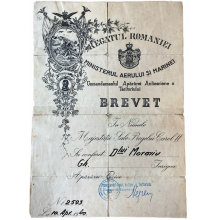 REGATUL ROMANIEI
MINISTERUL AERULUI ȘI MARINEI
Comandamentul Apărării Antiaeriene a
Teritoriului
BREVET
In Numele
Majestății Sale Regelui Carol II
Se conferă Dlui Moraviu
Gh. Insigna
Apărării Pasive
No. 2593
10 Apr. 1940